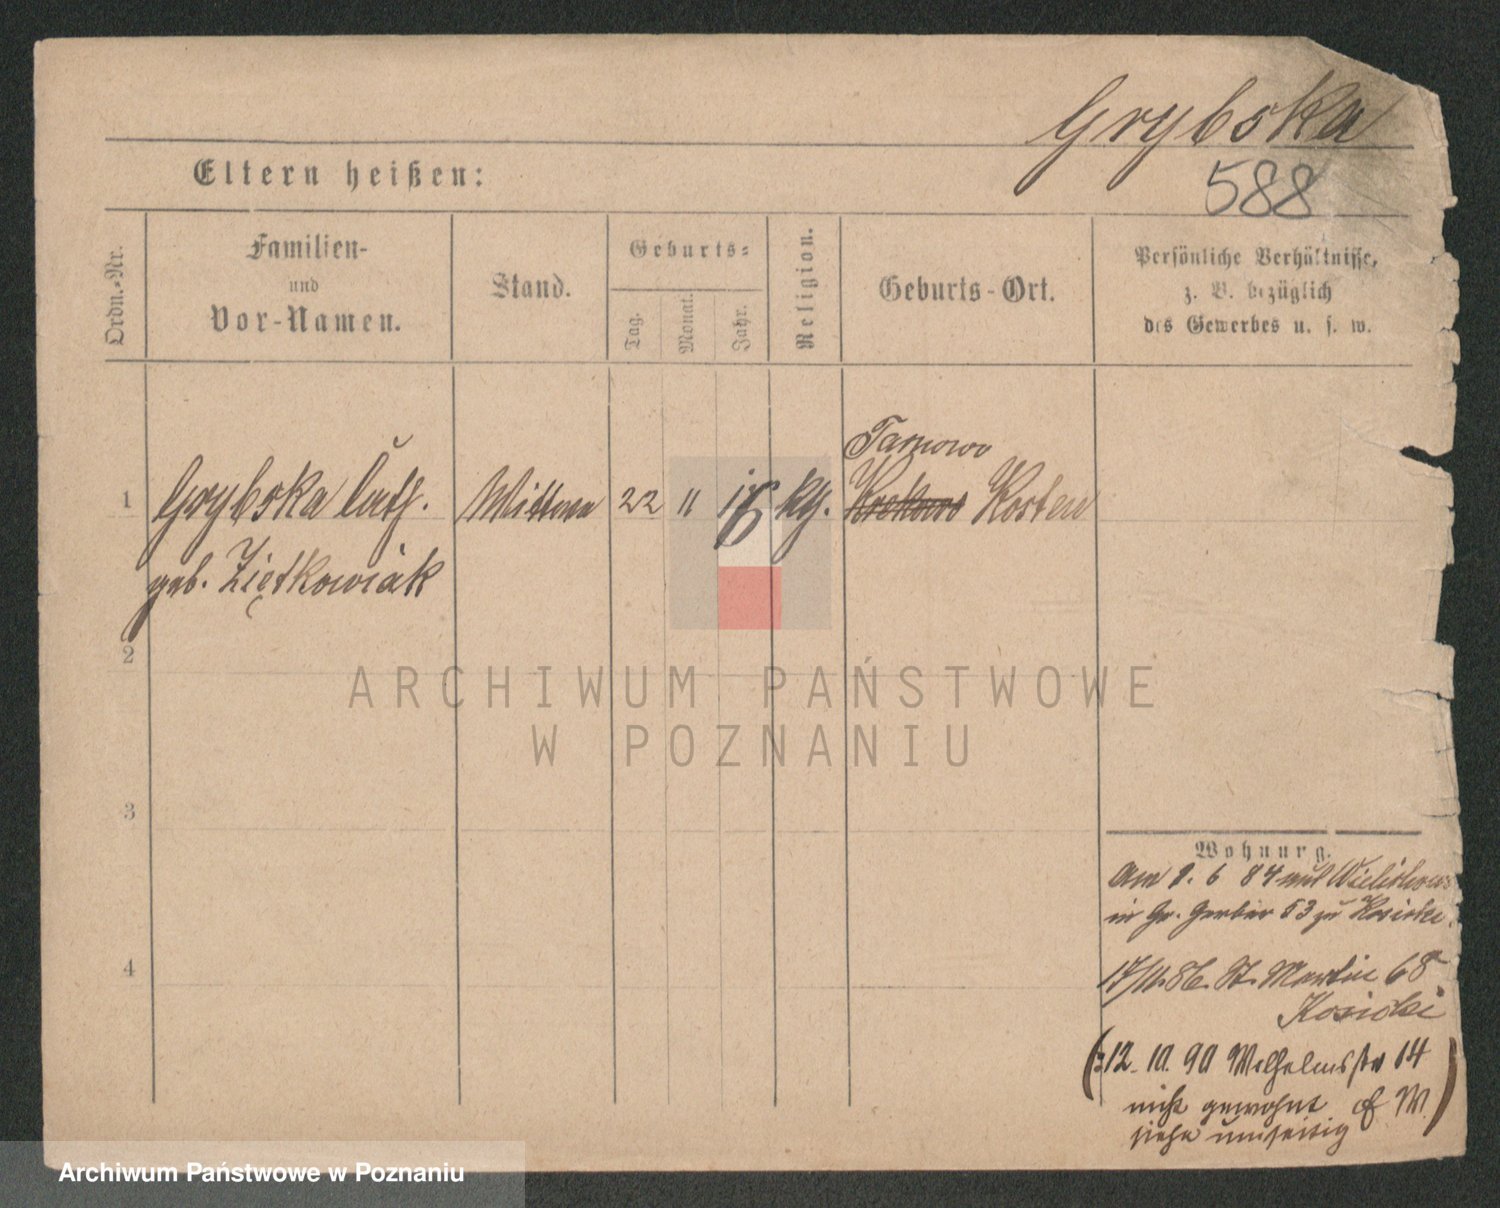 Grybska
588
Eltern heißen:
Ordn.-Nr.
Familien-
und
Vor-Namen.
Stand.
Geburts-
Tag.
Monat.
Jahr.
Religion.
Geburts-Ort.
Persönliche Verhältnisse,
z. B. bezüglich
des Gewerbes u. s. w.
Tarnowo
1 Grybska Cath. Wittwe 22 11 16 kth. Kosten
geb. Ziętkowiak
2
ARCHIWUM PAŃSTWOWE
W POZNANIU
3
Wohnung.
Am 9. 6 84 auf
in Gr. Gerber 53 zu Kosicki
4
17/11. 86. St. Martin 68
Kosicki
12. 10. 90 Wilhelmsstr 14
nicht gewohnt
siehe umseitig
Archiwum Państwowe w Poznaniu